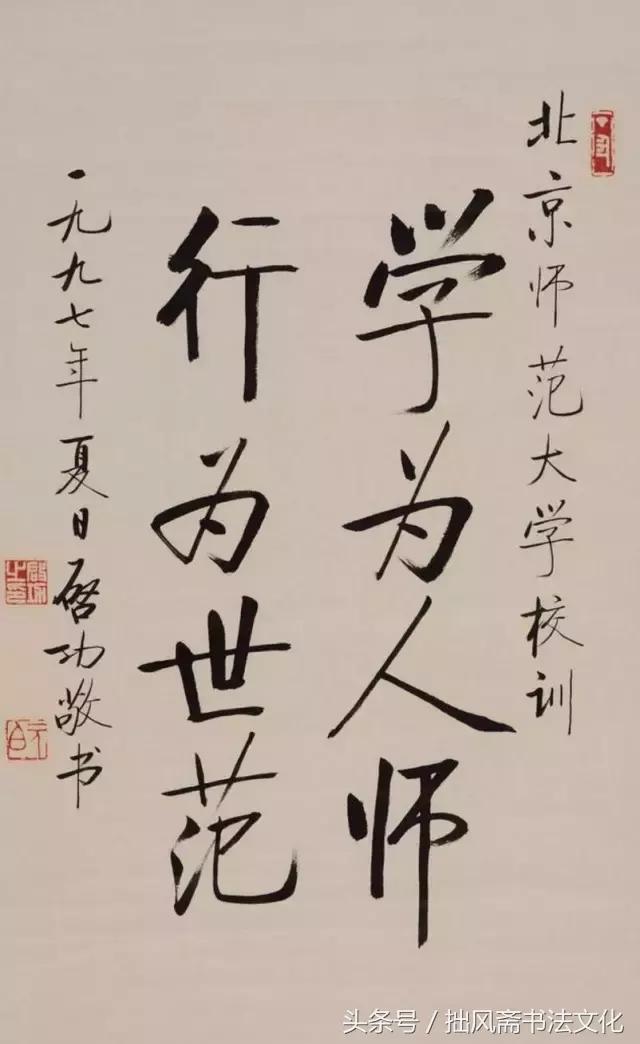 北京师范大学校训
学为人师
行为世范
一九九七年夏日启功敬书
头条号／拙风斋书法文化